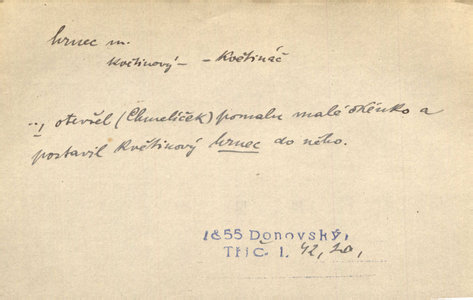 hrnec m.
květinový – – květináč
„, otevřel (Chmelíček) pomalu malé okénko a
postavil květinový hrnec do něho.
1855 Donovský,
Třič. 1. 42, 20,